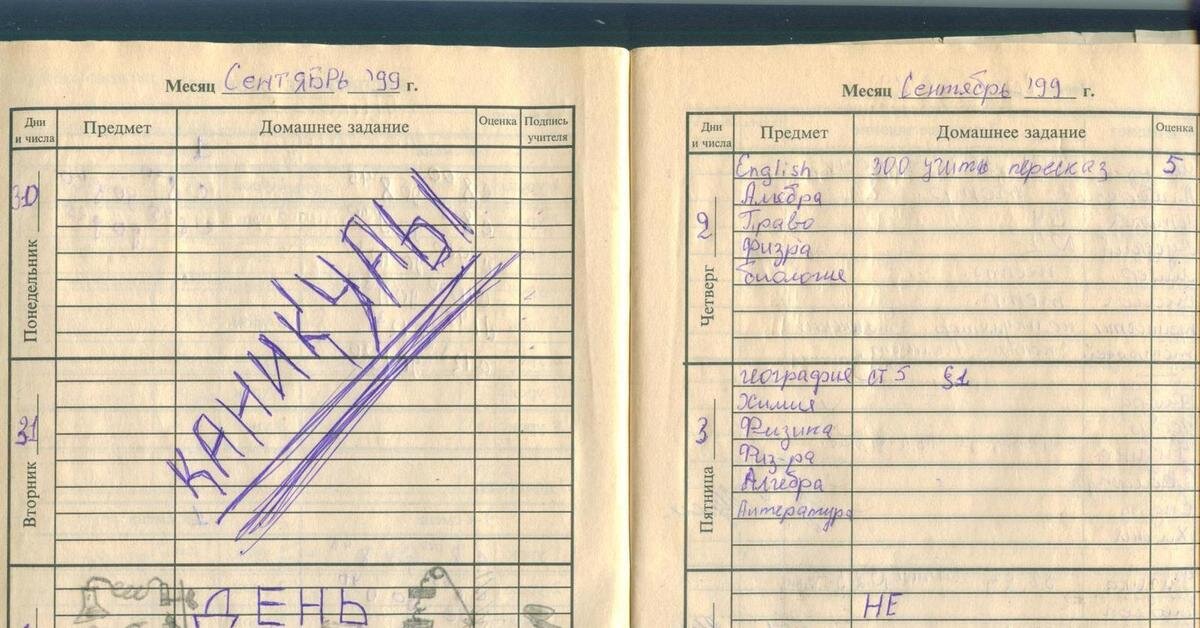 Месяц Сентябрь '99 г.
Дни и числа Предмет Домашнее задание Оценка Подпись учителя
30 Понедельник
КАНИКУЛЫ
31 Вторник
ДЕНЬ
Месяц Сентябрь '99 г.
Дни и числа Предмет Домашнее задание Оценка
2 Четверг
English 300 учить пересказ 5
Алгебра
Право
Физра
Биология
3 Пятница
география ст 5 §1
Химия
Физика
Физ-ра
Алгебра
Литература
НЕ